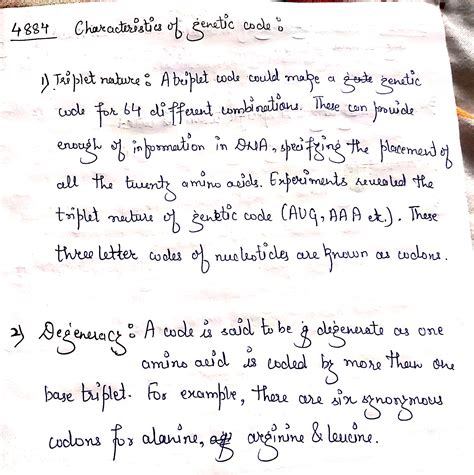 4884 Characteristics of genetic code :
1) Triplet nature : A triplet code could make a genetic
code for 64 different combinations. These can provide
enough of information in DNA, specifying the placement of
all the twenty amino acids. Experiments revealed the
triplet nature of genetic code (AUG, AAA et.). These
three letter codes of nucleotides are known as codons.
2) Degeneracy : A code is said to be degenerate as one
amino acid is coded by more than one
base triplet. For example, there are six synonymous
codons for alanine, arginine & leucine.